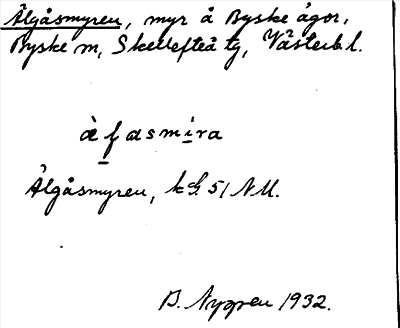 Älgåsmyren, myr å Byske ägor,
Byske sn, Skellefteå tg, Västerb. l.
Älgåsmyren, 51 NU.
B. Nygren 1932.